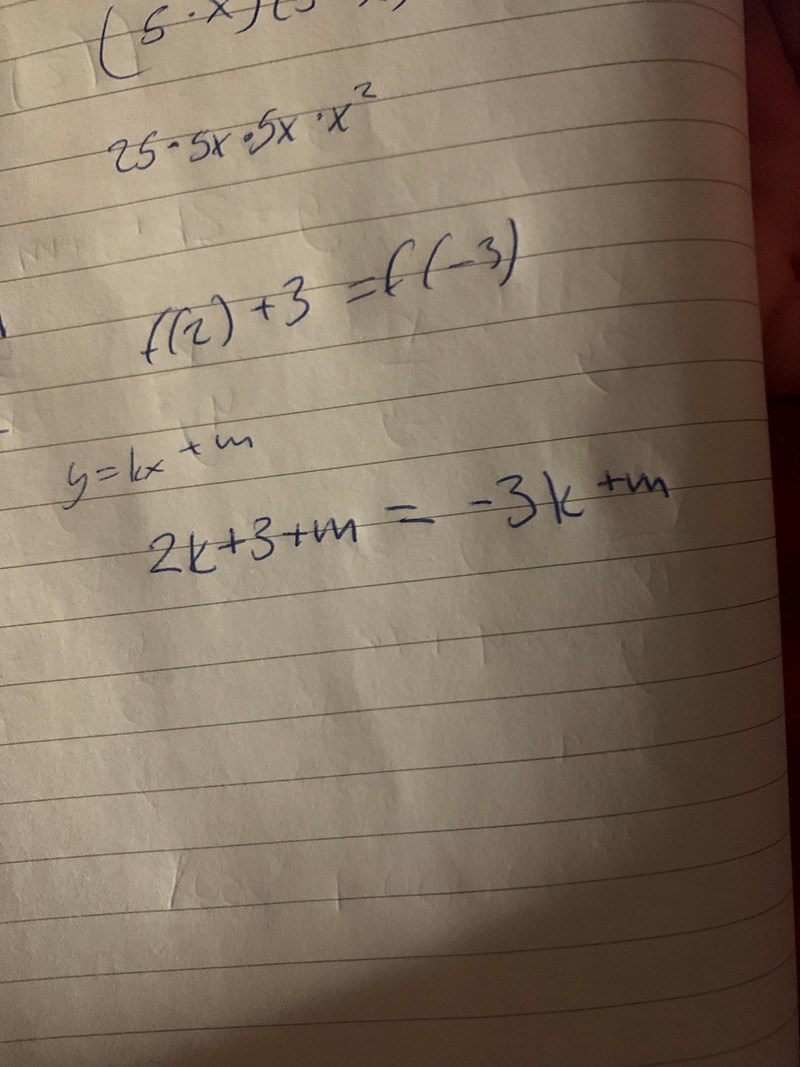 (5·x)(5
25·5x·5x·x²
f(2)+3=f(-3)
y=kx+m
2k+3+m=-3k+m